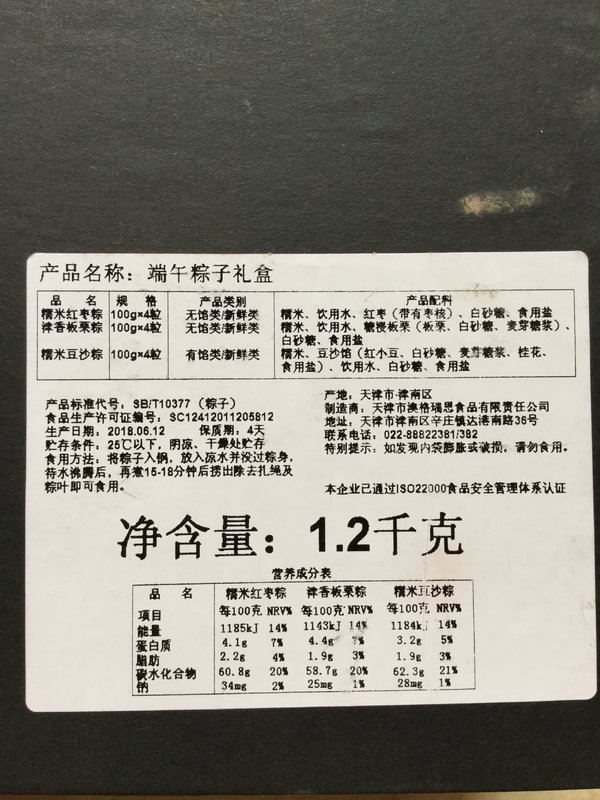 产品名称：端午粽子礼盒
品 名 规 格 产品类别 产品配料
糯米红枣粽 100g×4粒 无馅类/新鲜类 糯米、饮用水、红枣（带有枣核）、白砂糖、食用盐
津香板栗粽 100g×4粒 无馅类/新鲜类 糯米、饮用水、糖浸板栗（板栗、白砂糖、麦芽糖浆）、
白砂糖、食用盐
糯米豆沙粽 100g×4粒 有馅类/新鲜类 糯米、豆沙馅（红小豆、白砂糖、麦芽糖浆、桂花、
食用盐）、饮用水、白砂糖、食用盐
产品标准代号：SB/T10377（粽子）
食品生产许可证编号：SC12412011205812
生产日期：2018.06.12 保质期：4天
贮存条件：25℃以下，阴凉、干燥处贮存
食用方法：将粽子入锅，放入凉水并没过粽身，
待水沸腾后，再煮15-18分钟后捞出除去扎绳及
粽叶即可食用。
产地：天津市·津南区
制造商：天津市澳格瑞思食品有限责任公司
地址：天津市津南区辛庄镇达港南路36号
联系电话：022-88822381/382
特别提示：如发现内袋膨胀或破损，请勿食用。
本企业已通过ISO22000食品安全管理体系认证
净含量：1.2千克
营养成分表
品 名 糯米红枣粽 津香板栗粽 糯米豆沙粽
项目 每100克 NRV% 每100克 NRV% 每100克 NRV%
能量 1185kJ 14% 1143kJ 14% 1184kJ 14%
蛋白质 4.1g 7% 4.4g 7% 3.2g 5%
脂肪 2.2g 4% 1.9g 3% 1.9g 3%
碳水化合物 60.8g 20% 58.7g 20% 62.3g 21%
钠 34mg 2% 25mg 1% 28mg 1%